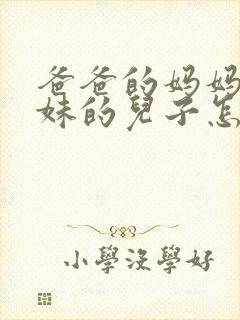 爸爸的妈妈
妹的兒子怎
小學沒學好